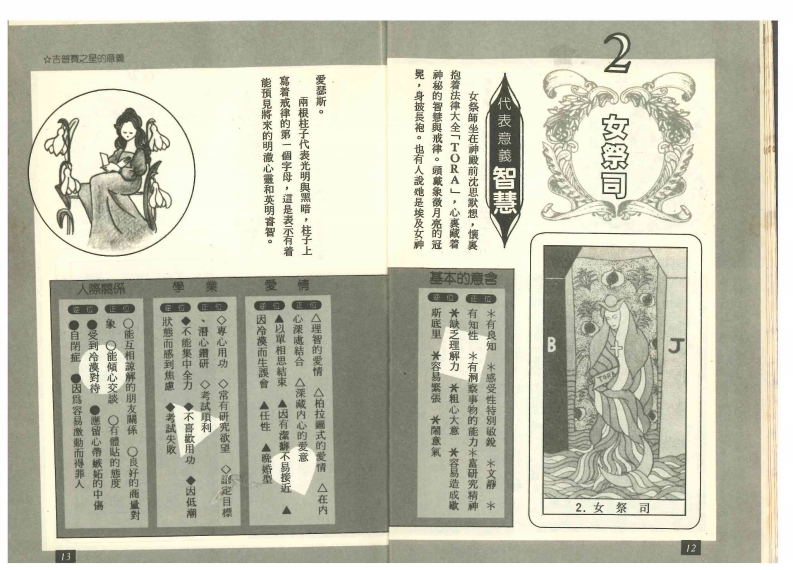 2
女祭司
代表意義 智慧
女祭師坐在神殿前沈思默想,懷裏
抱着法律大全「TORA」,心裏藏着
神秘的智慧與戒律。頭戴象徵月亮的冠
冕,身披長袍。也有人說她是埃及女神
B
J
TORA
2. 女祭司
基本的意含
正位
逆位
＊有良知 ＊感受性特別敏銳 ＊文靜 ＊
有知性 ＊有洞察事物的能力 ＊富研究精神
＊缺乏理解力 ＊粗心大意 ＊容易造成歇
斯底里 ＊容易緊張 ＊鬧意氣
12
☆吉普賽之星的意義
愛瑟斯。
兩根柱子代表光明與黑暗,柱子上
寫着戒律的第一個字母,這是表示有着
能預見將來的明澈心靈和英明睿智。
愛情
正位
逆位
△理智的愛情 △柏拉圖式的愛情 △在內
心深處結合 △深藏內心的愛意
▲以單相思結束 ▲因有潔癖不易接近 ▲
因冷漠而生誤會 ▲任性 ▲晚婚型
學業
正位
逆位
◇專心用功 ◇常有研究欲望 ◇設定目標
、潛心鑽研 ◇考試順利
◆不能集中全力 ◆不喜歡用功 ◆因低潮
狀態而感到焦慮 ◆考試失敗
人際關係
正位
逆位
○能互相諒解的朋友關係 ○良好的商量對
象 ○能傾心交談 ○有體貼的態度
●受到冷漠對待 ●應留心帶嫉妬的中傷
●自閉症 ●因為容易激動而得罪人
13